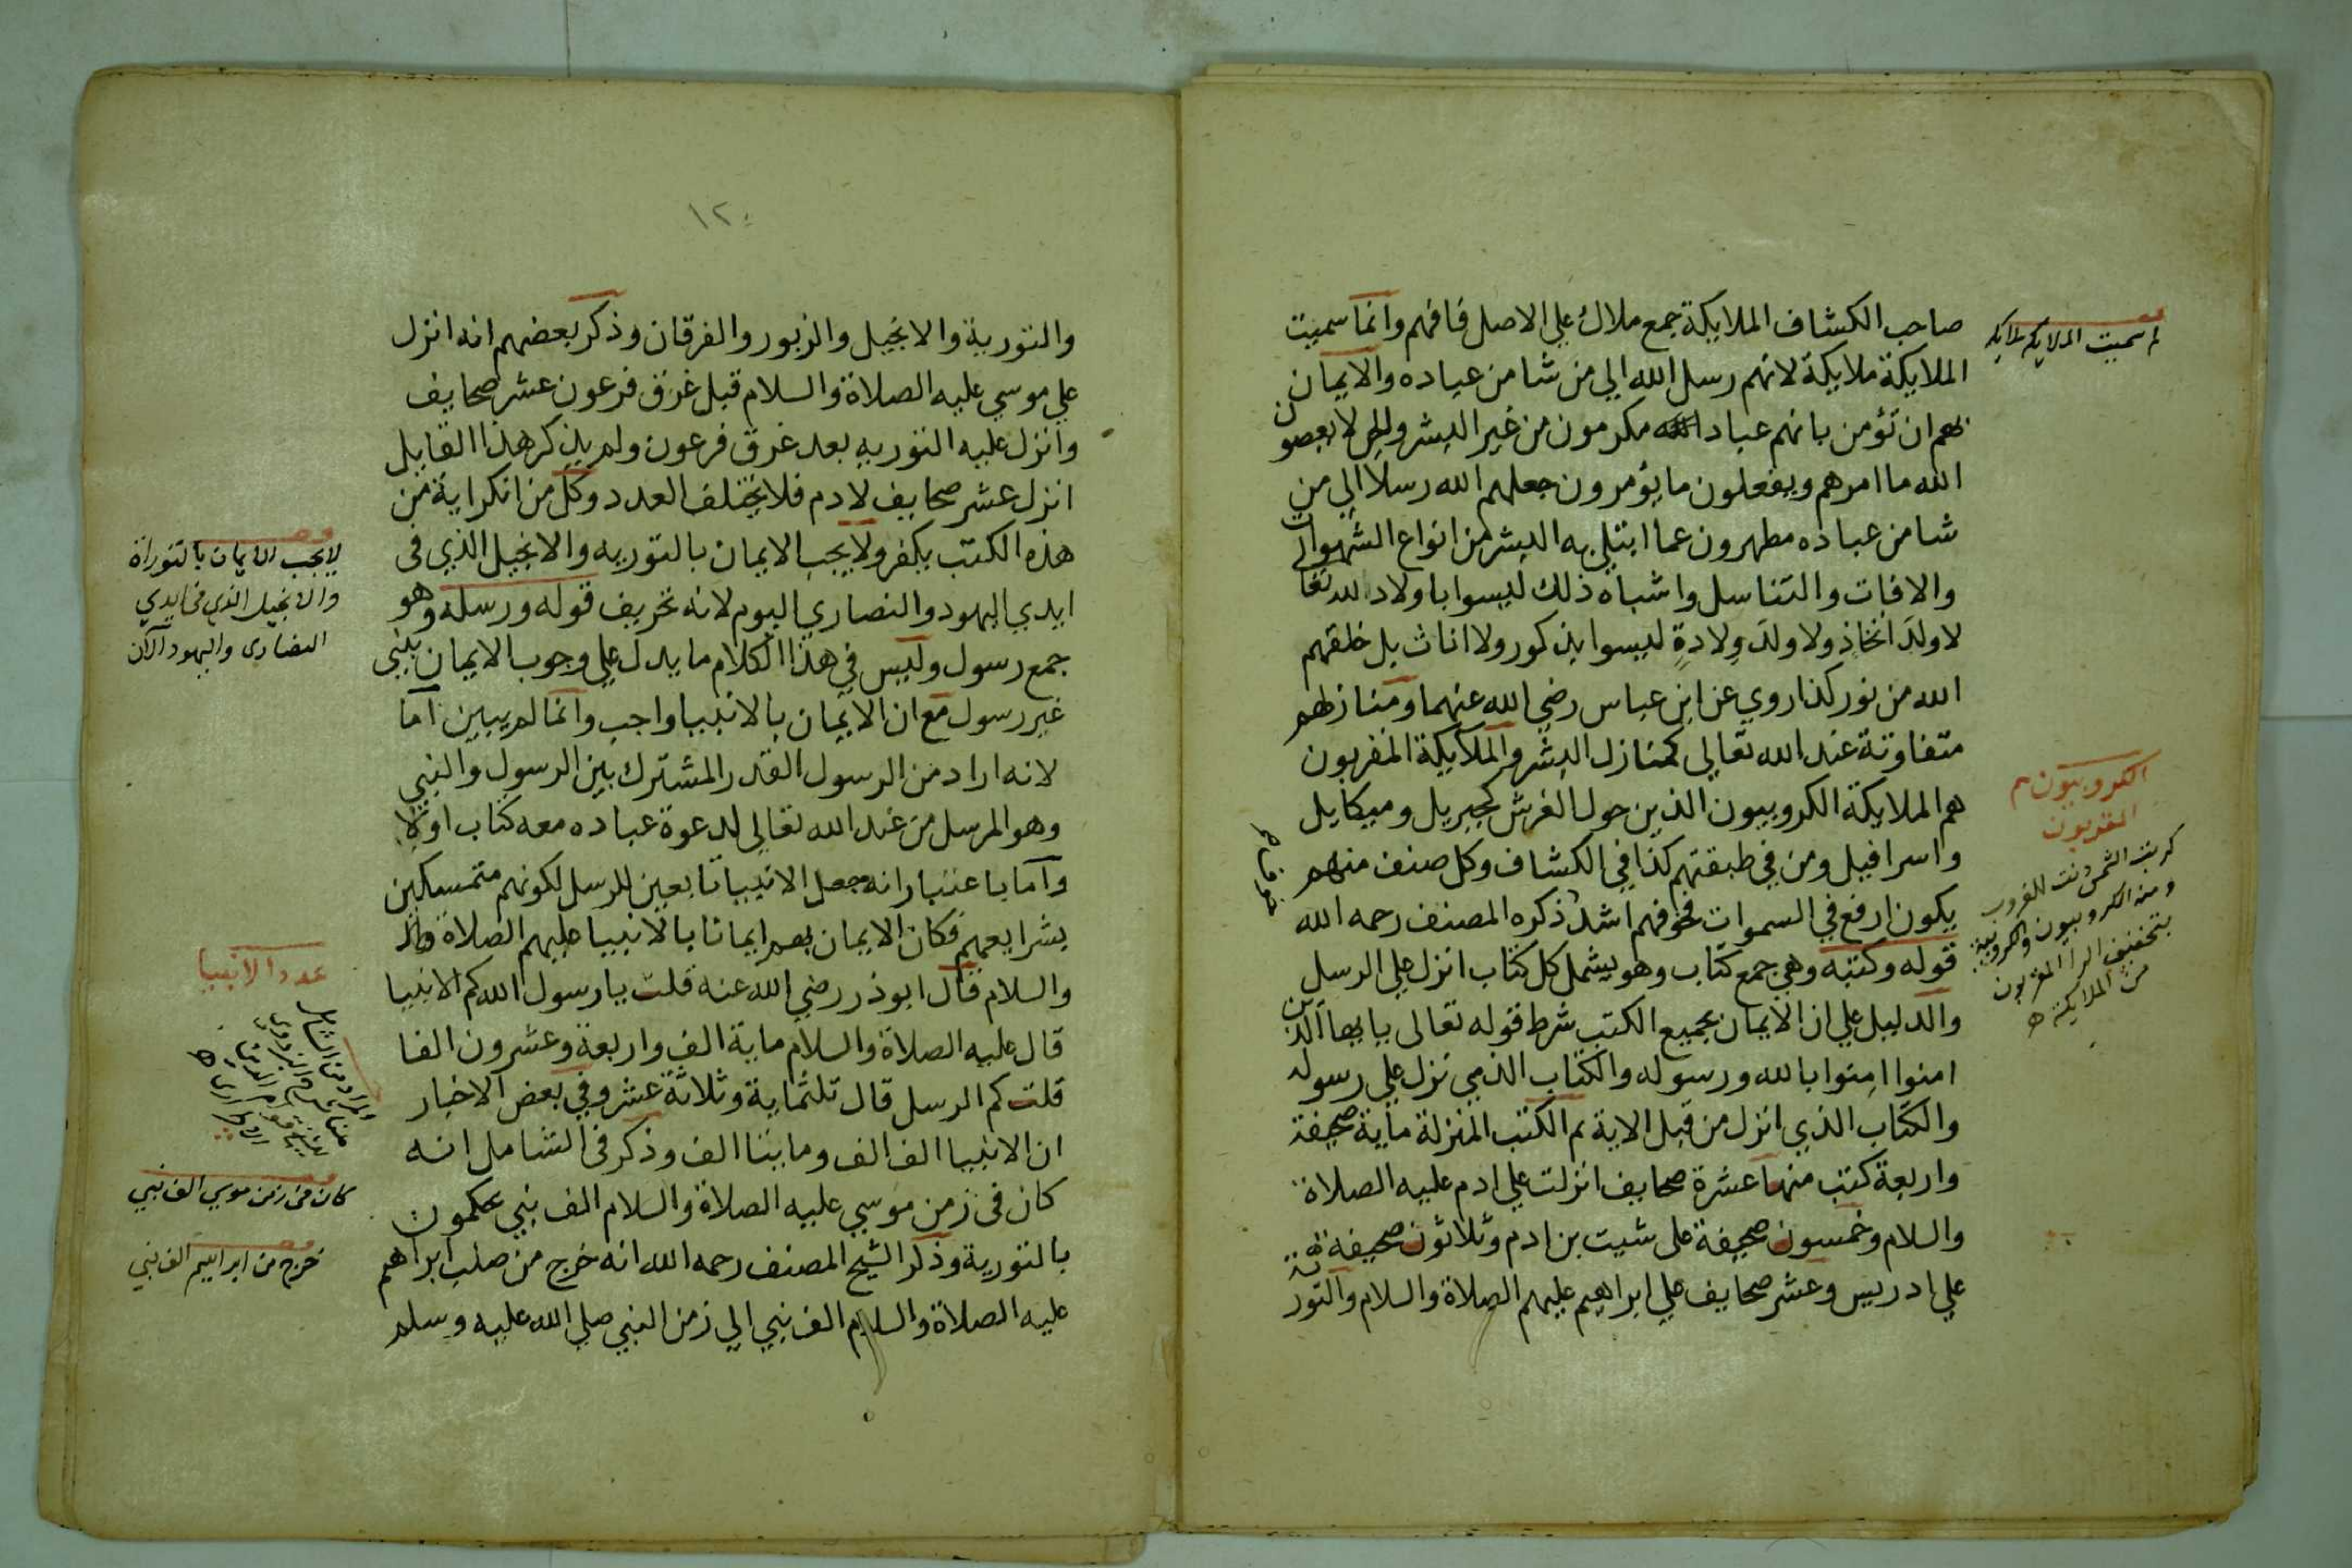 صاحب الكشاف الملايكة جمع ملاك علي الاصل فافهم وانما سميت
الملايكة ملايكة لانهم رسل الله الي من شا من عباده والايمان
بهم ان تؤمن بانهم عباد الله مكرمون من غير البشر والجن لا يعصون
الله ما امرهم ويفعلون ما يؤمرون جعلهم الله رسلا الي من
شا من عباده مطهرون عما ابتلي به البشر من انواع الشهوات
والافات والتناسل واشباه ذلك ليسوا باولاد لله تعالي
لا ولدَ اتخاذٍ ولا ولدَ وِلادةٍ ليسوا بذكور ولا اناث بل خلقهم
الله من نور كذا روي عن ابن عباس رضي الله عنهما ومنازلهم
متفاوتة عند الله تعالي كمنازل البشر والملايكة المقربون
هم الملايكة الكروبيون الذين حول العرش كجبريل وميكايل
واسرافيل ومن في طبقتهم كذا في الكشاف وكل صنف منهم
يكون ارفع في السموات فخوفهم اشد ذكره المصنف رحمه الله
قوله وكتبه وهي جمع كتاب وهو يشمل كل كتاب انزل علي الرسل
والدليل علي ان الايمان بجميع الكتب شرط قوله تعالي يايها الذين
امنوا امنوا بالله ورسوله والكتاب الذي نزل علي رسوله
والكتاب الذي انزل من قبل الاية ثم الكتب المنزلة ماية صحيفة
واربعة كتب منها عشرة صحايف انزلت علي ادم عليه الصلاة
والسلام وخمسون صحيفة علي شيت بن ادم وثلاثون صحيفة
علي ادريس وعشر صحايف علي ابراهيم عليهم الصلاة والسلام والتور
لم سميت الملايكه ملايكه
الكروبيون هم
المقربون
كربت الشمس دنت للغروب
ومنه الكروبيون والكروبية
بتخفيف الرا المقربون
من الملايكة
١٢
والتورية والانجيل والزبور والفرقان وذكر بعضهم انه انزل
علي موسي عليه الصلاة والسلام قبل غرق فرعون عشر صحايف
وانزل عليه التوريه بعد غرق فرعون ولم يذكر هذا القايل
انزل عشر صحايف لادم فلا يختلف العدد وكل من انكر اية من
هذه الكتب يكفر ولا يجب الايمان بالتوريه والانجيل الذي في
ايدي اليهود والنصاري اليوم لانه تحريف قوله ورسله وهو
جمع رسول وليس في هذا الكلام ما يدل علي وجوب الايمان بنبي
غير رسول مع ان الايمان بالانبيا واجب وانما لم يبين اما
لانه اراد من الرسول القدر المشترك بين الرسول والنبي
وهو المرسل من عند الله تعالي لدعوة عباده معه كتاب اولا
واما باعتبار انه جعل الانبيا تابعين للرسل لكونهم متمسكين
بشرايعهم فكان الايمان بهم ايمانا بالانبيا عليهم الصلاة
والسلام قال ابو ذر رضي الله عنه قلت يا رسول الله كم الانبيا
قال عليه الصلاة والسلام ماية الف واربعة وعشرون الفا
قلت كم الرسل قال ثلثماية وثلاثة عشر وفي بعض الاخبار
ان الانبيا الف الف ومايتا الف وذكر في الشامل انه
كان في زمن موسي عليه الصلاة والسلام الف نبي يحكمون
بالتورية وذكر الشيخ المصنف رحمه الله انه خرج من صلب ابراهيم
عليه الصلاة والسلام الف نبي الي زمن النبي صلي الله عليه وسلم
لا يجب الايمان بالتوراة
والانجيل الذي في ايدي
النصارى واليهود الآن
عدد الانبيا
كان في زمن موسي الف نبي
خرج من ابراهيم الف نبي